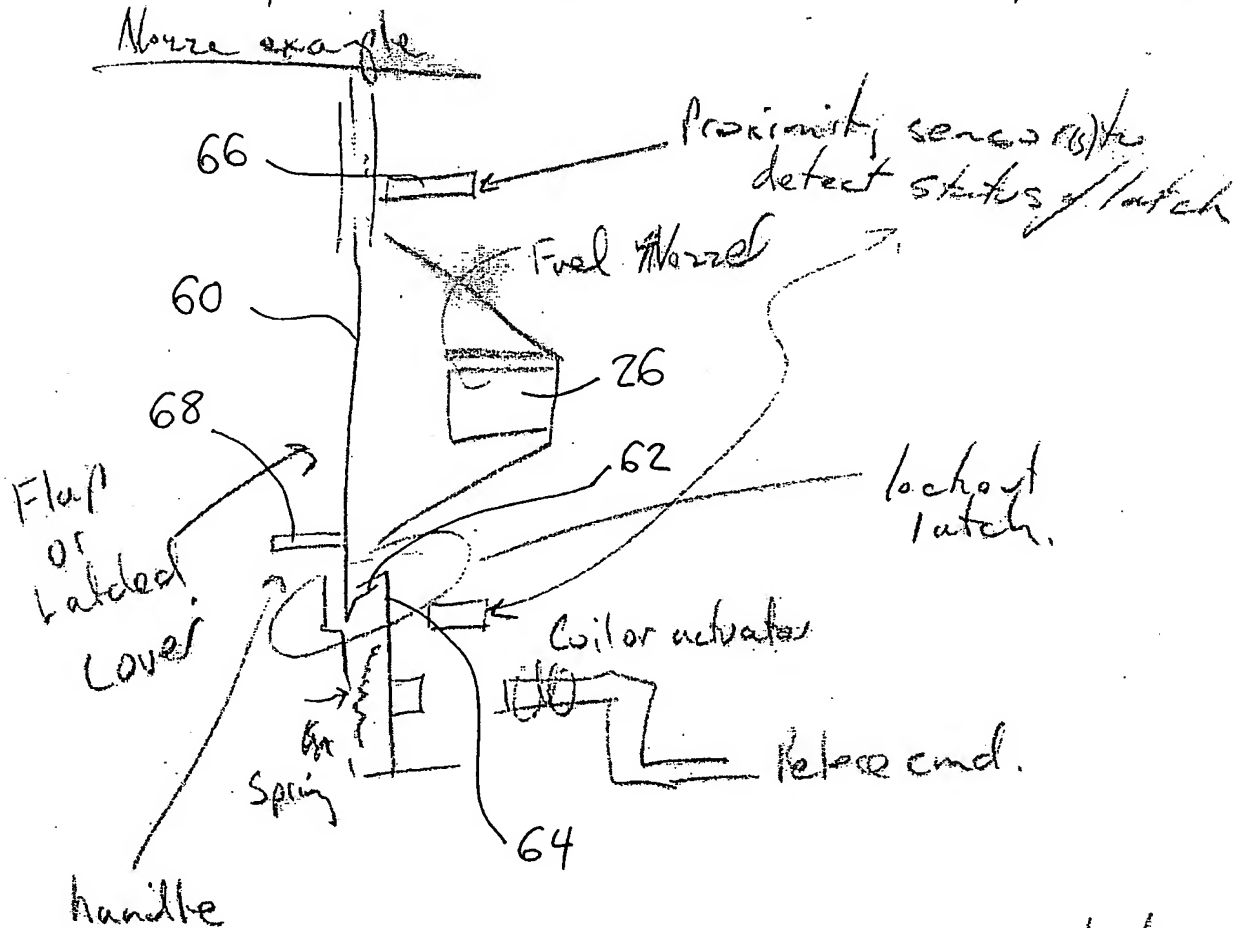 example
66
Proximity sensor(s) to
detect status of latch
Fuel Nozzel
60
26
68
62
Flap
or
Latched
Cover
lockout
latch.
Coil or actuator
Spring
cmd.
64
handle